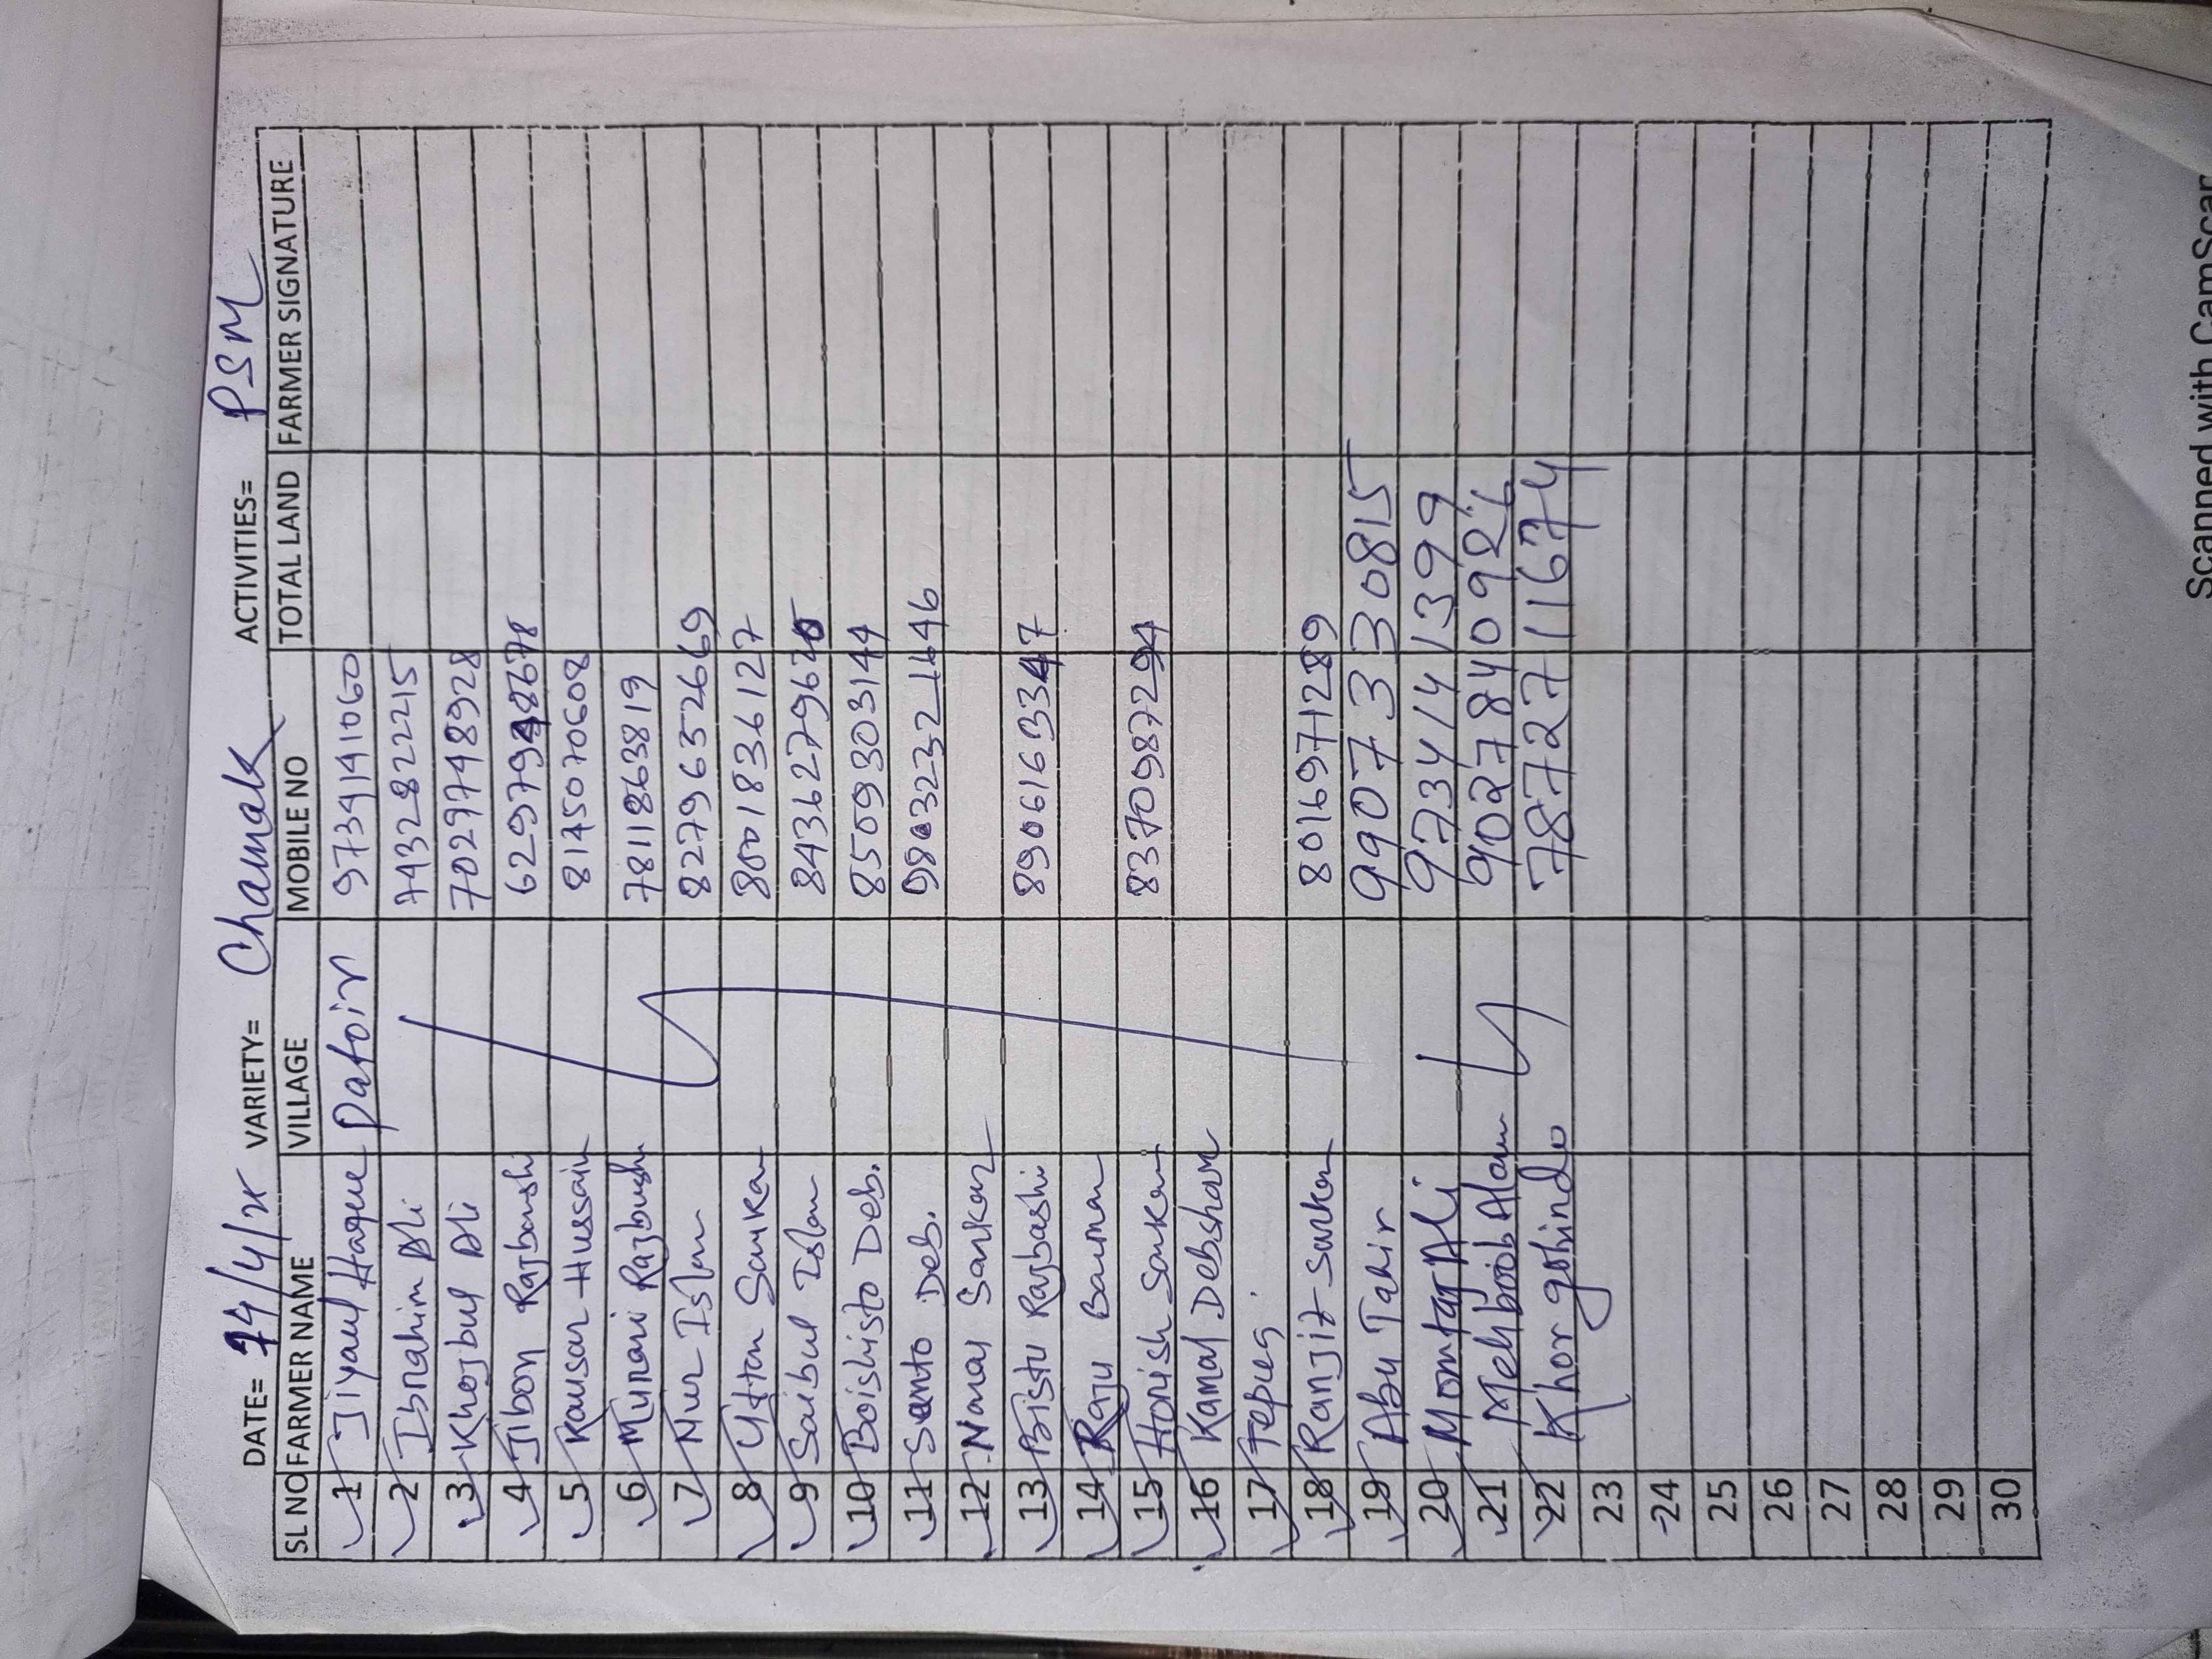 DATE= 14/4/25 VARIETY= Chamak ACTIVITIES= PSM
SL NO FARMER NAME VILLAGE MOBILE NO TOTAL LAND FARMER SIGNATURE
1 Jiyaul Haque Patoir 9734141060
2 Ibrahim Ali 7432822215
3 Khojbul Ali 7029748928
4 Jibon Rajbanshi 6297948678
5 Kausar Hussain 8145070608
6 Murari Rajbushi 7811863819
7 Nur Islam 8279652669
8 Uttam Sarkar 8001836127
9 Saibul Islam 843627962
10 Boishisto Deb. 8509303144
11 Santo Deb. 98032321646
12 Naray Sarkar
13 Bistu Rajbashi 8906163347
14 Raju Barman
15 Horish Sarkar 8370987294
16 Kamal Debsharm
17 Tepu
18 Ranjit Sarkar 8016971289
19 Abu Tahir 9907330815
20 Momtaj Ali 9734141399
21 Mehboob Alam 9027840926
22 Khorgobindo 7872711674
23
24
25
26
27
28
29
30
Scanned with CamScan